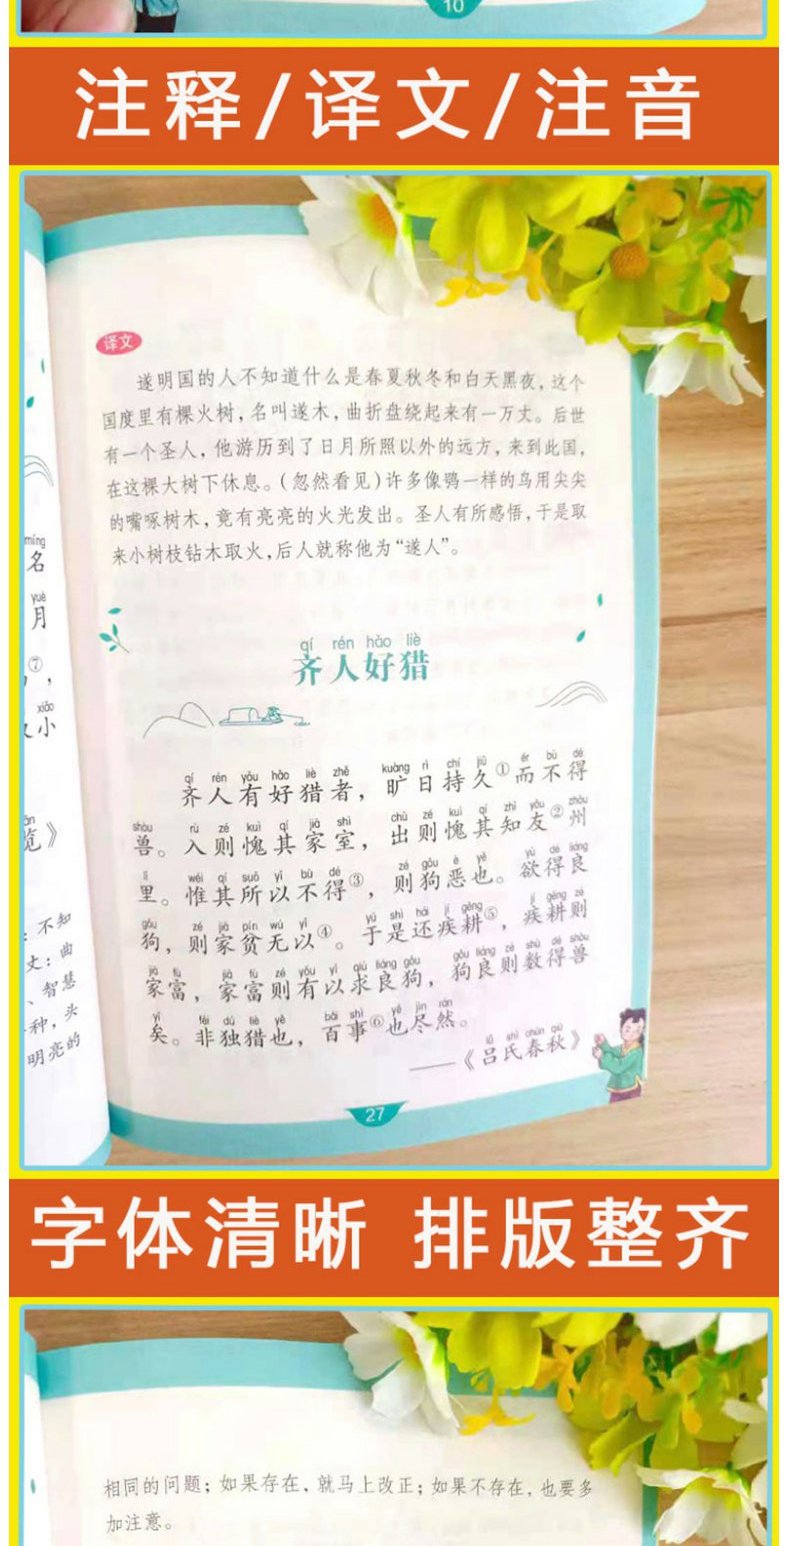 10
注释/译文/注音
译文
遂明国的人不知道什么是春夏秋冬和白天黑夜，这个
国度里有棵火树，名叫遂木，曲折盘绕起来有一万丈。后世
有一个圣人，他游历到了日月所照以外的远方，来到此国，
在这棵大树下休息。（忽然看见）许多像鸮一样的鸟用尖尖
的嘴啄树木，竟有亮亮的火光发出。圣人有所感悟，于是取
来小树枝钻木取火，后人就称他为“遂人”。
míng
名
yuè
月
⑦，
xiǎo
小
览》
：不知
丈：曲
、智慧
种，头
明亮的
qí rén hào liè
齐人好猎
qí rén yǒu hào liè zhě kuàng rì chí jiǔ ér bù dé
齐人有好猎者，旷日持久①而不得
shòu rù zé kuì qí jiā shì chū zé kuì qí zhī yǒu zhōu
兽。入则愧其家室，出则愧其知友②州
lǐ wéi qí suǒ yǐ bù dé zé gǒu è yě yù dé liáng
里。惟其所以不得③，则狗恶也。欲得良
gǒu zé jiā pín wú yǐ yú shì hái jí gēng jí gēng zé
狗，则家贫无以④。于是还疾耕⑤，疾耕则
jiā fù jiā fù zé yǒu yǐ qiú liáng gǒu gǒu liáng zé shù dé shòu
家富，家富则有以求良狗，狗良则数得兽
yǐ fēi dú liè yě bǎi shì yě jìn rán
矣。非独猎也，百事⑥也尽然。
lǚ shì chūn qiū
——《吕氏春秋》
27
字体清晰 排版整齐
相同的问题；如果存在，就马上改正；如果不存在，也要多
加注意。